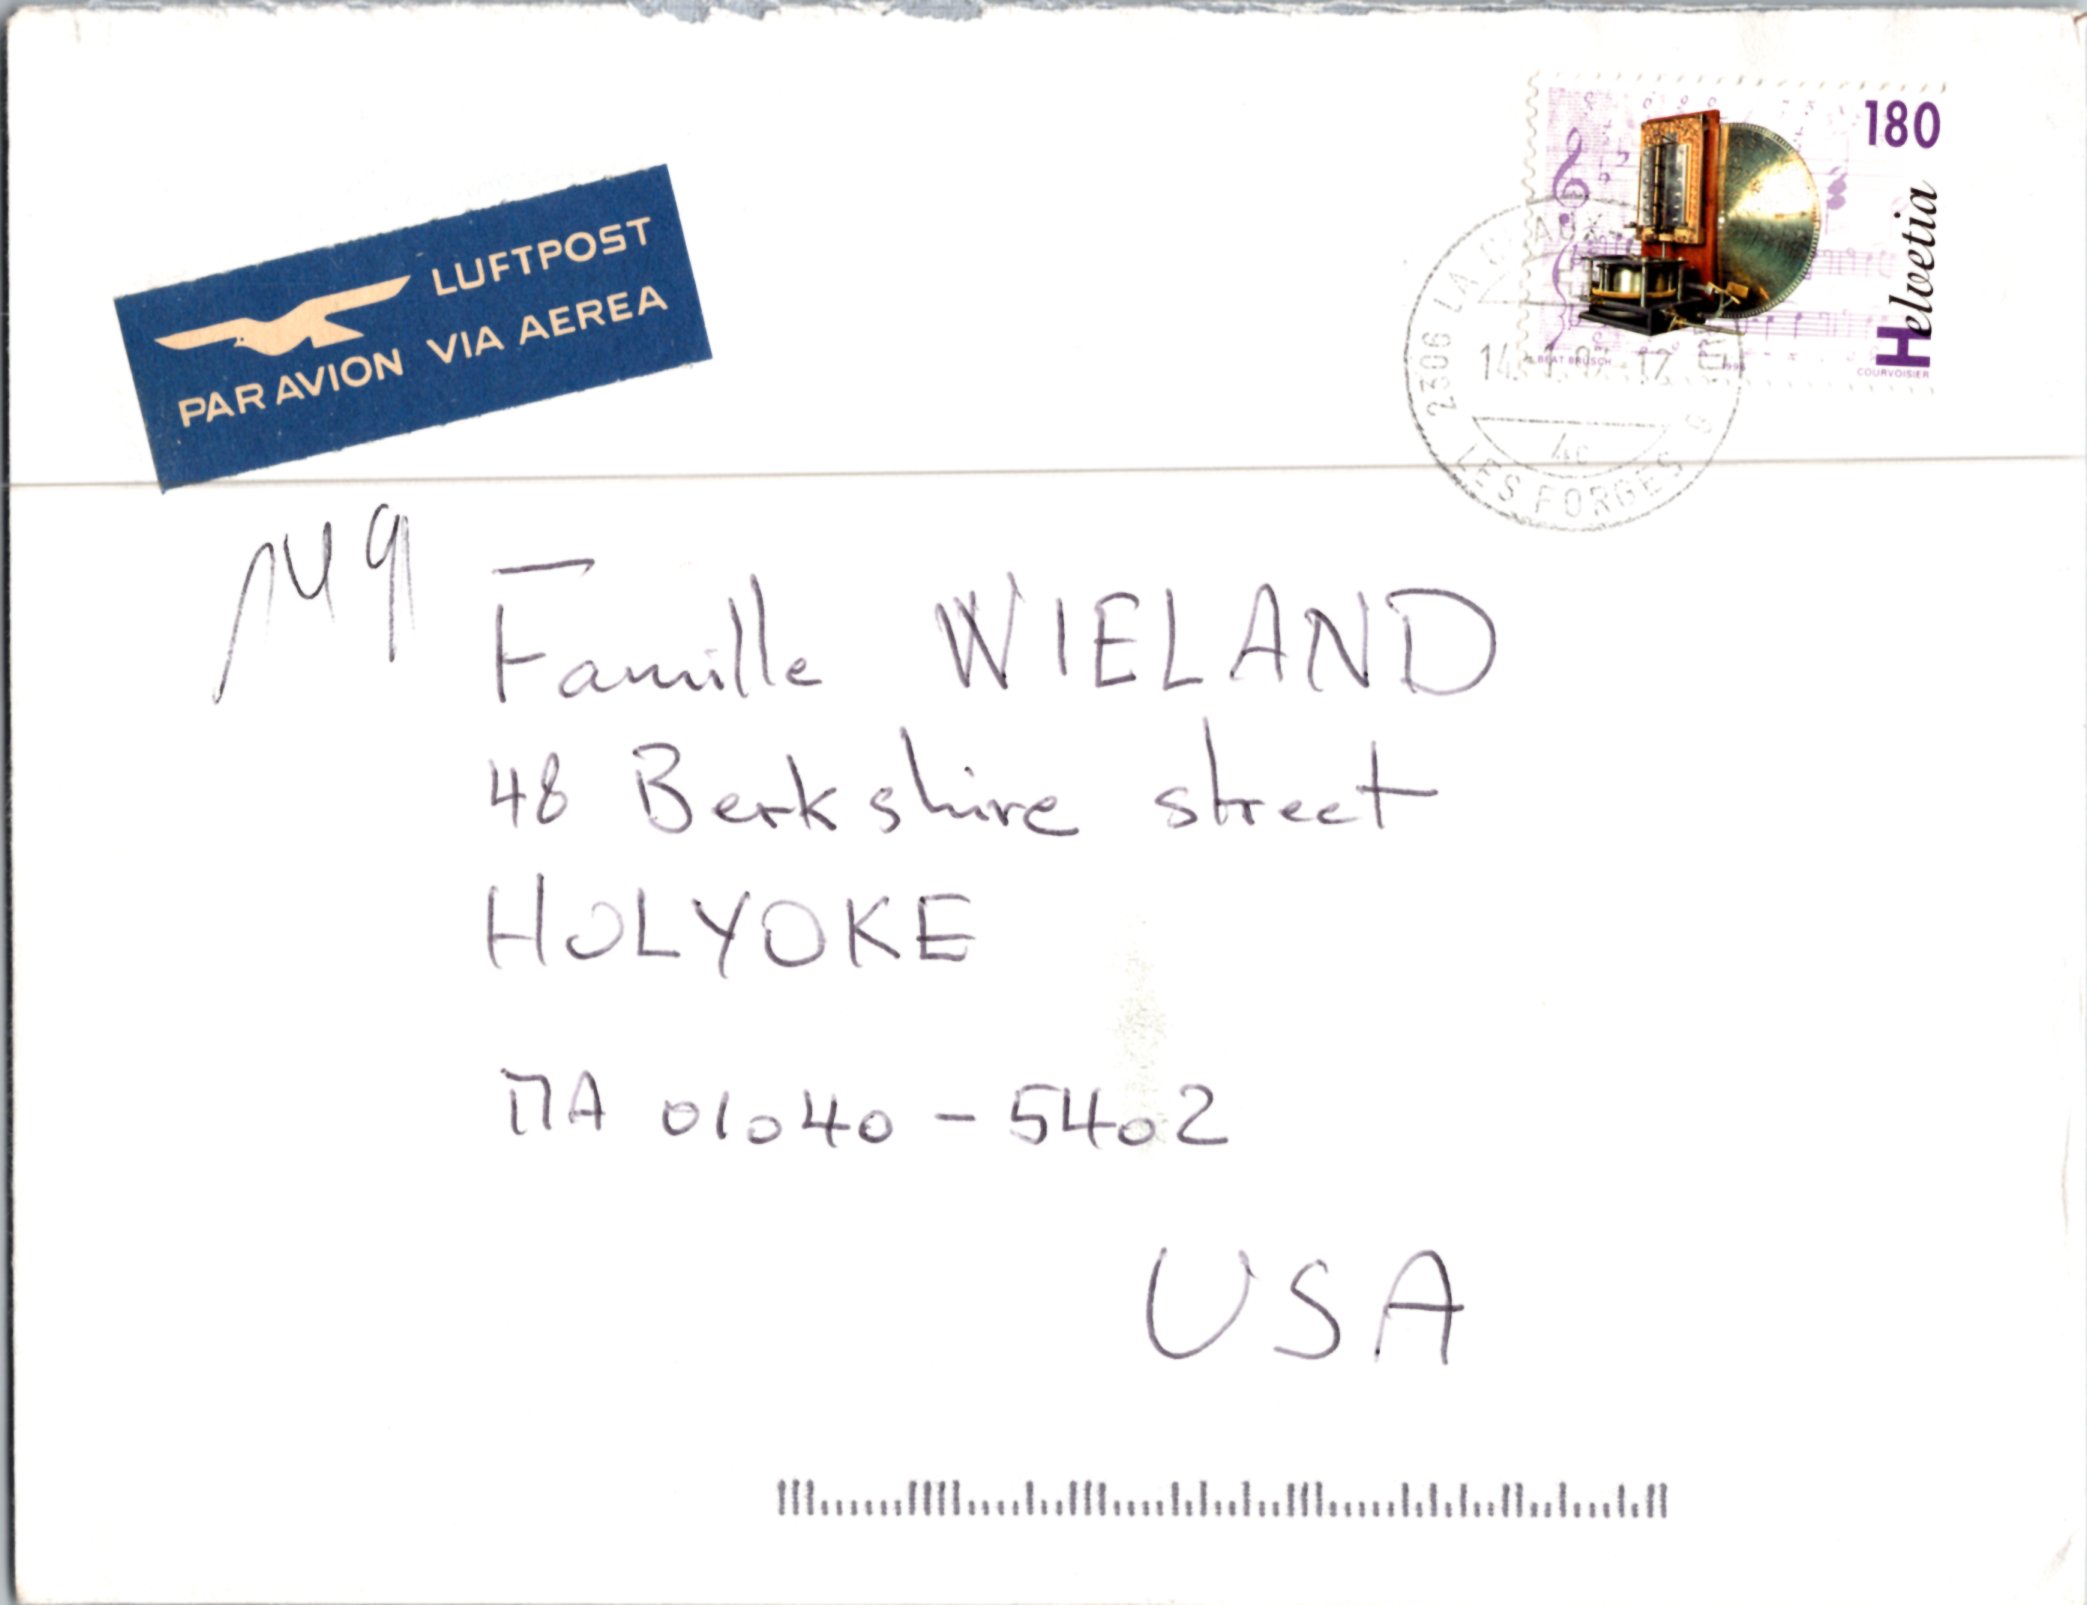 LUFTPOST
PAR AVION VIA AEREA
180
Helvetia
COURVOISIER
2306 LA
LES FORGES
Famille WIELAND
48 Berkshire street
HOLYOKE
MA 01040 - 5402
USA